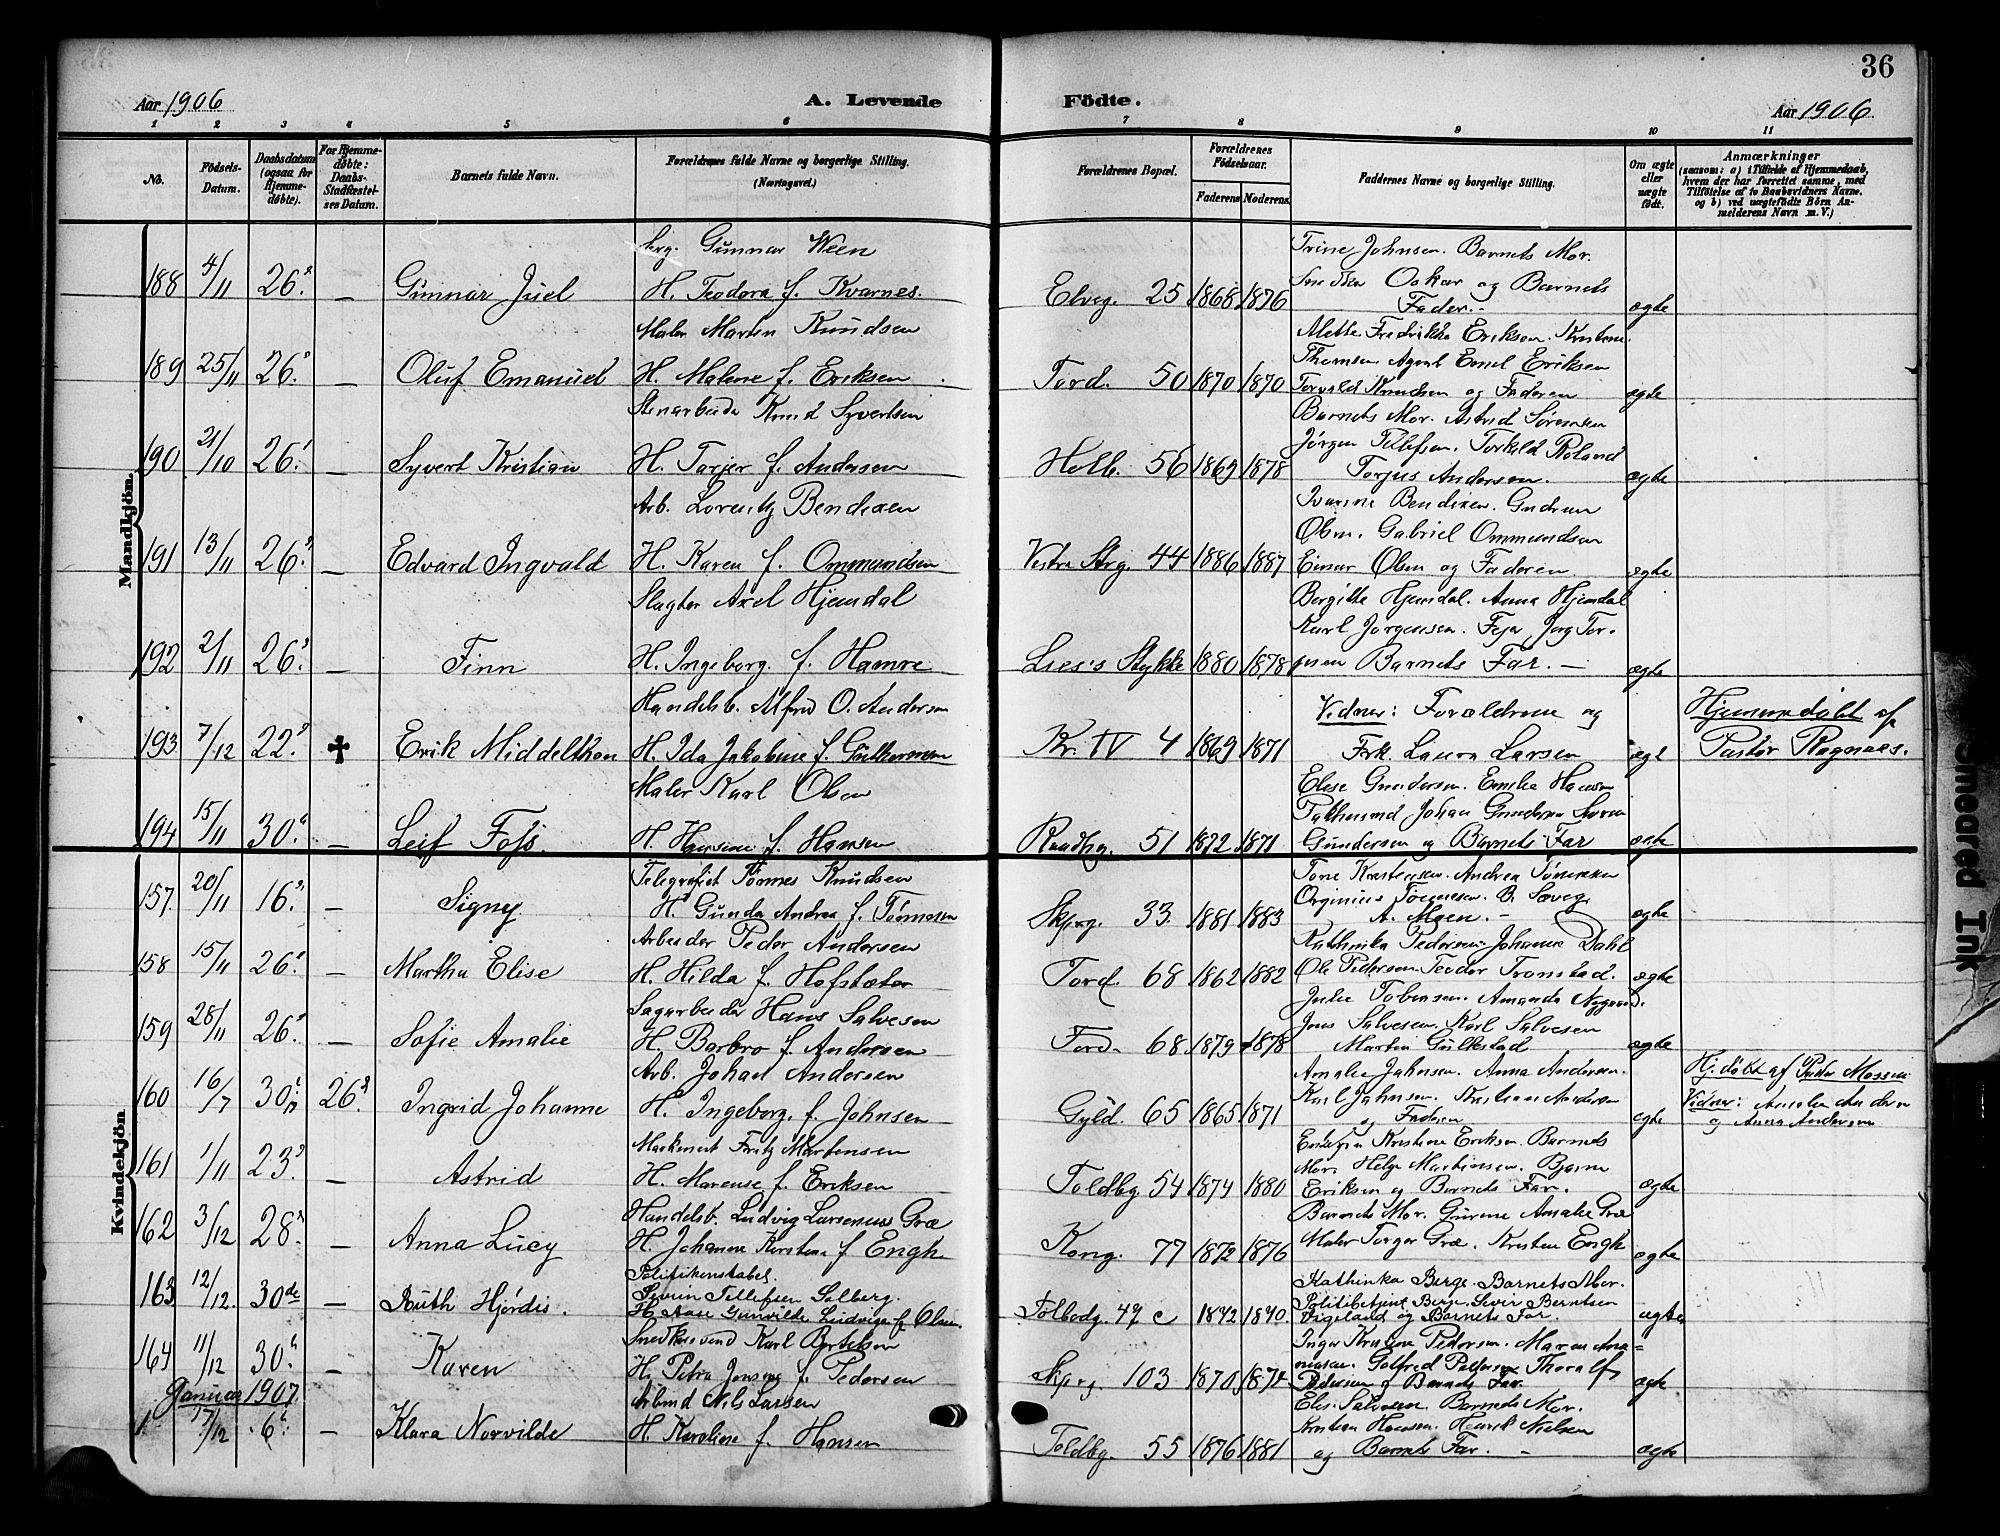 36
Aar 1906
A. Levende Födte.
Aar 1906
1 2 3 4 5 6 7 8 9 10 11
No.
Födsels-Datum.
Daabsdatum (ogsaa for Hjemme-döbte).
For Hjemme-döbte: Daabs-Stadfæstel-ses Datum.
Barnets fulde Navn.
Forældrenes fulde Navne og borgerlige Stilling. (Næringsvei.)
Forældrenes Bopæl.
Forældrenes Födselsaar.
Faderens Moderens
Faddernes Navne og borgerlige Stilling.
Om ægte eller uægte födt.
Anmærkninger
(saasom: a) i Tilfælde af Hjemmedaab,
hvem der har forrettet samme, med
Tilföielse af to Daabsvidners Navne.
og b) ved uægtefödte Börn An-
melderens Navn m. V.)
Mandkjön.
Gunnar Ween Trine Johnsen. Barnets Mor.
188 4/11 26. — Gunnar Juel H. Teodora f. Kvarnes. Elveg. 25 1868 1876 Oskar og Barnets
Fader. — ægte
Maler Martin Knudsen Mette Fredrikke Eriksen.
189 25/11 26. — Oluf Emanuel H. Malene f. Eriksen Tord. 50 1870 1870 Thomsen. Agent Emil Eriksen
Torvald Knudsen og Faderen ægte
Stenarbeider Knud Syvertsen Barnets Mor. Astrid Sørensen
190 21/10 26. — Syvert Kristian H. Tarjer f. Andersen Holb. 56 1869 1878 Jørgen Tellefsen. Torkild Roland
Torjus Andersen. ægte
Arb. Lorentz Bendixen Bendixen. Gudrun
191 13/11 26. — Edvard Ingvald H. Karen f. Ommundsen Vestre Strg. 44 1886 1887 Olsen. Gabriel Ommundsen
Einar Olsen og Faderen ægte
Slagter Axel Hjemdal Bergitte Hjemdal. Anna Hjemdal
192 2/11 26. — Finn H. Ingeborg. f. Hamre Stykke 1880 1878 Karl Jorgensen.
Barnets Far. — ægte
Handelsb. Alfred O. Andersen Vidner: Forældrene og
193 7/12 22. ✝ Erik Middelthon H. Ida Jakobine f. Kr. IV 4 1869 1871 Frk. Laura Larsen ægte Hjemmedøbt af
Pastor Ragnaes.
Maler Karl Olsen Elise Gundersen. Emilie Hansen
194 15/11 30. — Leif Foss. H. Hansine f. Hansen Raadhg. 51 1872 1871 Johan Gundersen
Gundersen og Barnets Far ægte
Kvindekjön
Telegrafist Tønnes Knudsen Andrea Tønnesen
157. 20/11 16. — Signy H. Gunda Andrea f. Tønnesen Skjerg. 33 1881 1883 Tønnesen.
A. Moen. — ægte
Arbeider Peder Andersen Kathinka Pedersen. Johanne Dahl
158 15/11 26. — Martha Elise H. Hilda f. Hofstæter Tord. 68 1862 1882 Ole Pedersen. Teodor Tronstad. ægte
Sagarbeider Hans Salvesen Julie Tobiasen. Amanda
159 28/11 26. — Sofie Amalie H. Barbro f. Andersen Tord. 68 1879 1878 Jens Salvesen. Karl Salvesen
Martin Gulestad ægte
Arb. Johan Andersen Amalie Johnsen. Anna Andersen.
160 16/7 30. 26. Ingrid Johanne H. Ingeborg. f. Johnsen Gyld. 65 1865 1871 Karl Johnsen. Kristian Andersen
og Faderen ægte
Hj. døbt af Pastor Mossin
Vidner: Amalie Andersen
og Anna Andersen
Maskinist Fritz Martensen Kristine Eriksen. Barnets
161 1/11 23. — Astrid H. Marense f. Eriksen Toldbg. 54 1874 1880 Mor. Helge Martinsen. Bjarne
Eriksen og Barnets Far. ægte
Handelsb. Ludvig Larsenius Græ Barnets Mor. Gurine Amalie Græ
162 3/12 28. — Anna Lucy H. Johanne Kirstine f Engh Kong. 77 1872 1876 Maler Torger Græ. Kristen Engh ægte
Politikonstabel. Kathinka Berge. Barnets Mor.
163 12/12. 30de — Ruth Hjørdis. Severin Tellefsen Solberg. Tolbodg. 49 c 1842 1840 Politibetjent Berge. Sevir Berntsen
H. Aase Gunvilde Ludvige f Olsen. Vigeland og Barnets Far. ægte
Snedkersvend Karl Bertelsen Inger Kristine Pedersen. Maren
164 11/12 30. — Karen H. Petra Jensine f. Pedersen Skjerg. 103 1870 1872 Golfred Pedersen Thoralf
Pedersen og Barnets Far. ægte
Januar 1907.
Arbmd Nils Larsen Elis. Salvesen Barnets Mor.
1 17/12 6. — Klara Norvilde H. Karoline f. Hansen Toldbg. 55 1876 1881 Kristian Hansen. Henrik Nielsen
og Barnets Far. — ægte
Smeared Ink